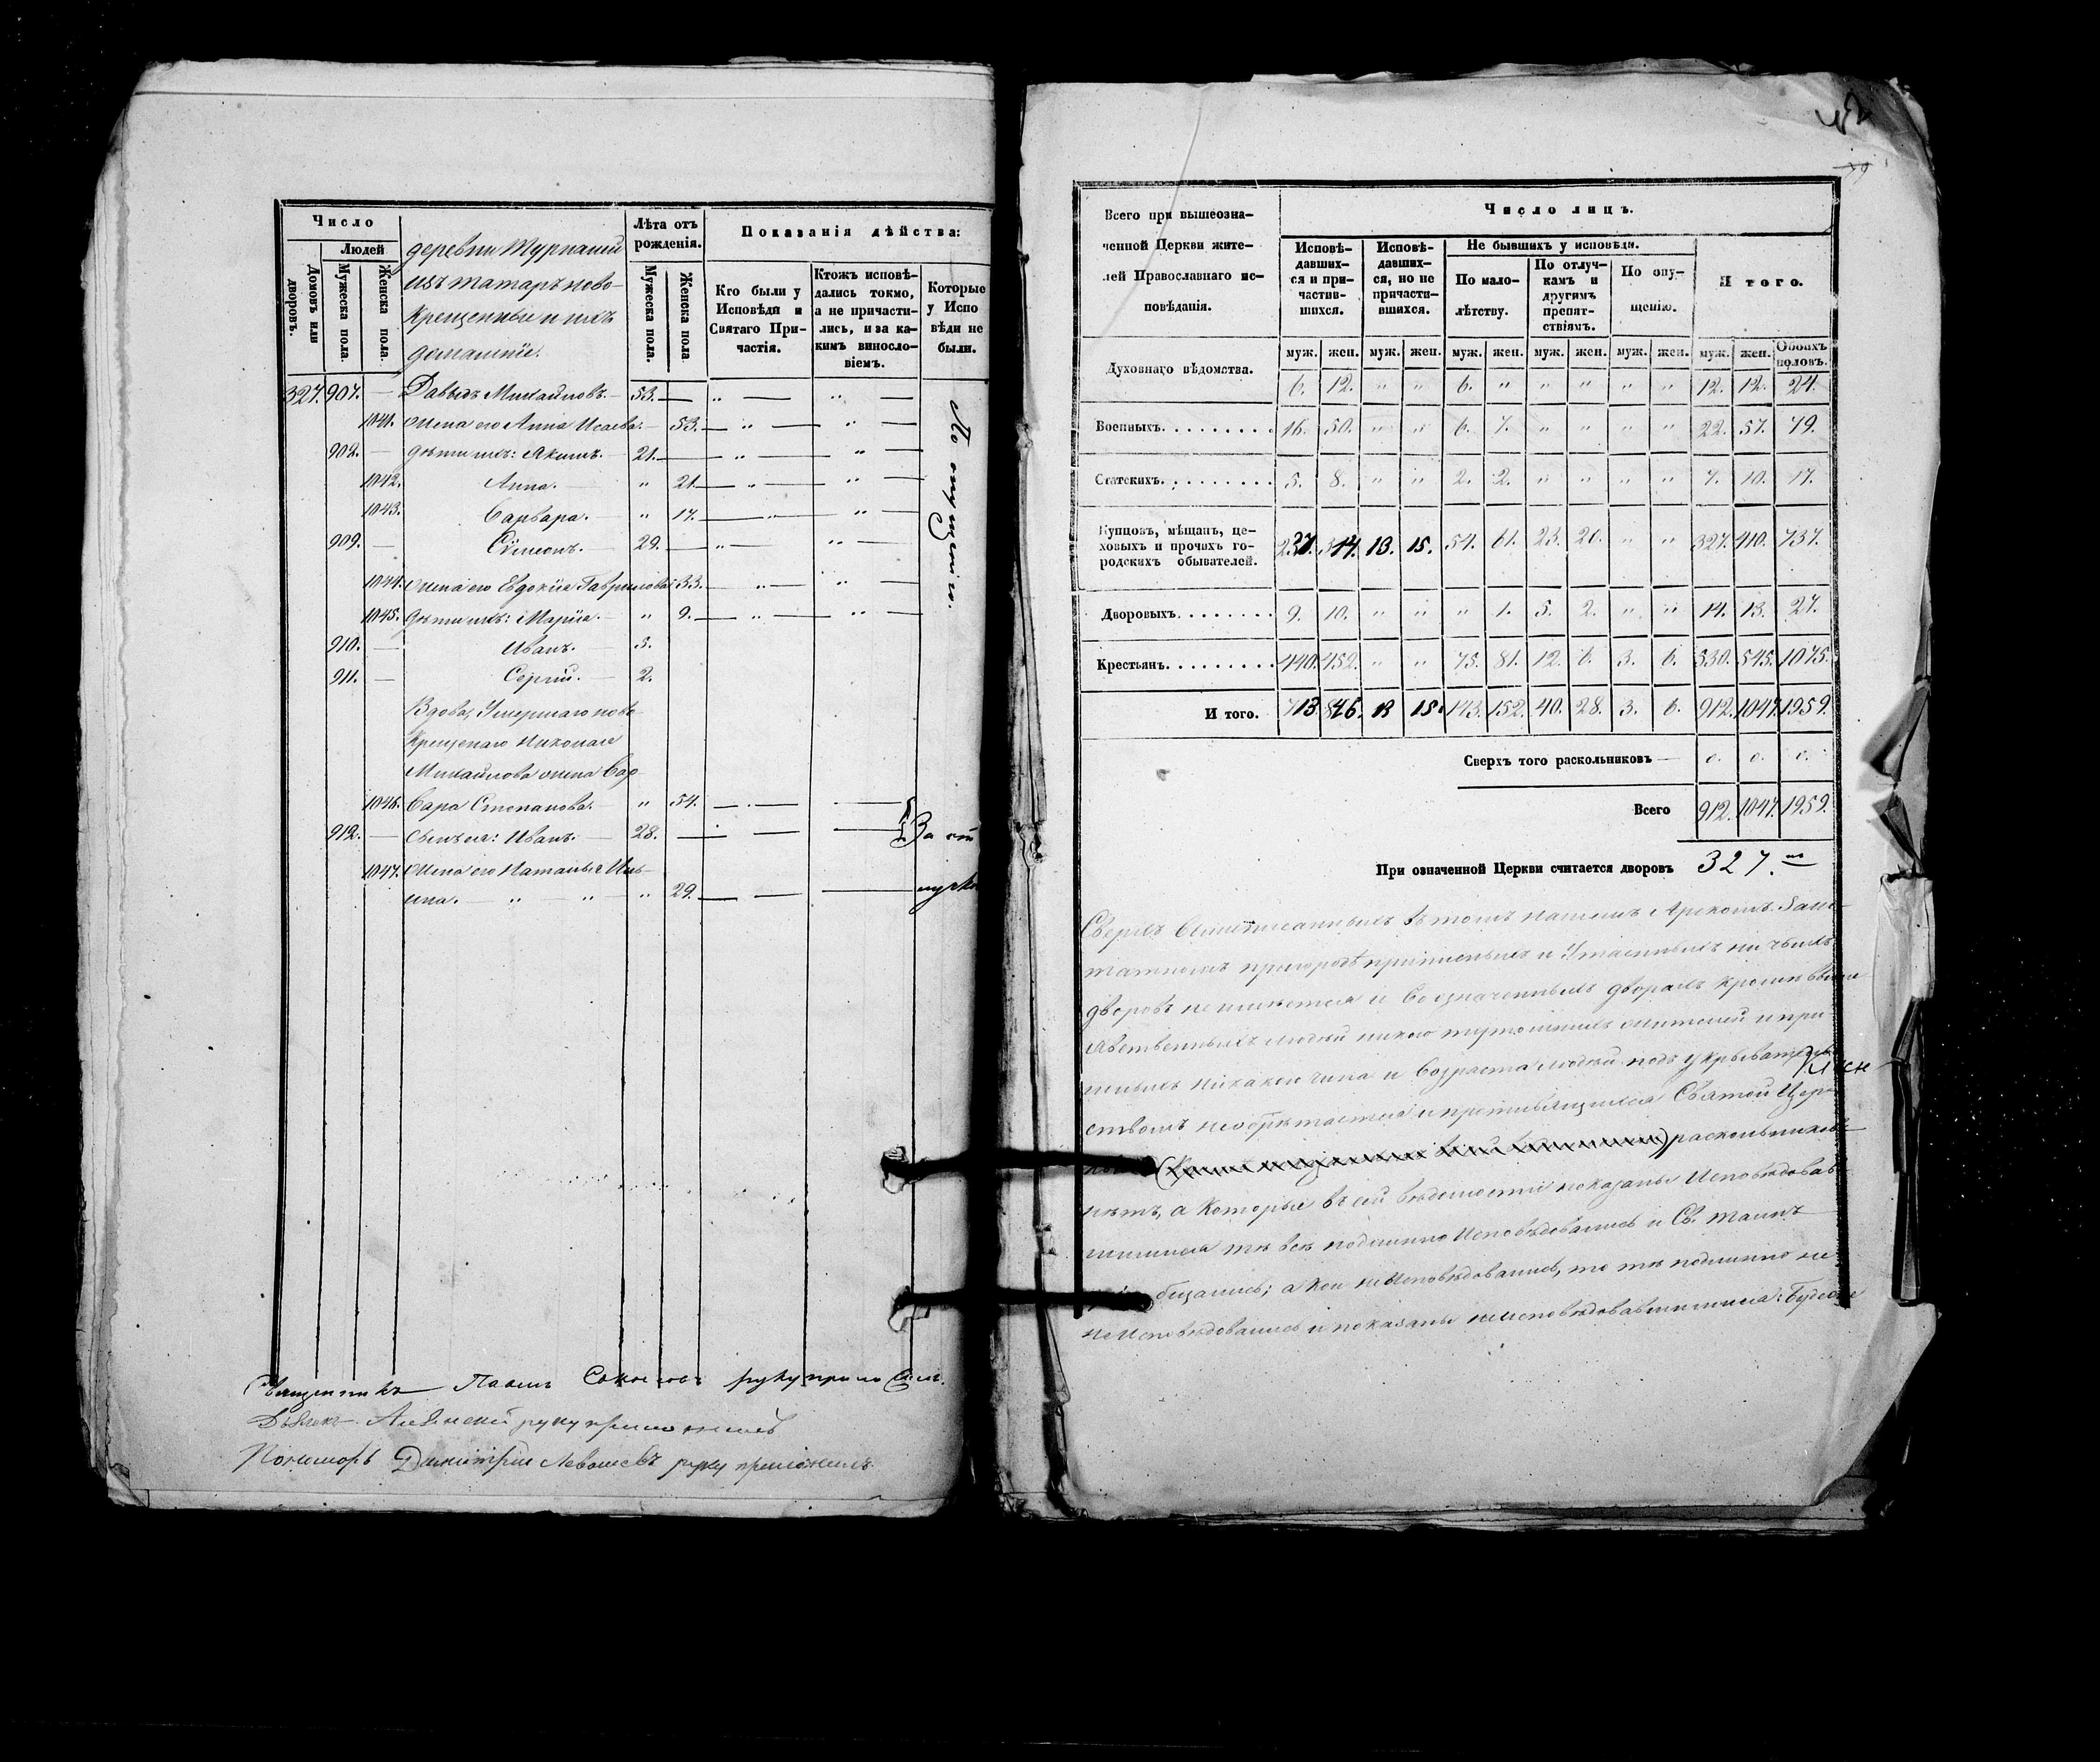 Число
Людей
Домовъ или дворовъ.
Мужеска пола.
Женска пола.
деревни Турнаши
изъ татаръ ново-
крещенные и ихъ
домашніе.
Лѣта отъ рожденія.
Мужеска пола.
Женска пола
Показанія дѣйства:
Кто были у Исповѣди и Святаго Причастія.
Ктожъ исповѣдались токмо, а не причастились, и за какимъ винословіемъ.
Которые у Исповѣди не были.
327. 907. — Давыдъ Михайловъ. — 53. — „ — „ —
1041. жена его Анна Исаева. — 53. — „ — „ —
908. — дѣти ихъ: Якимъ. — 21. — „ — „ —
1042. Анна. — „ 21. — „ — „ —
1043. Варвара. — „ 17. — „ — „ —
909. — Сѵмеонъ. — 29. — „ — „ —
1044. жена его Евдокія Гаврилова 33. — „ — „ —
1045. дѣти ихъ: Марія. — „ 9. — „ — „ —
910. — Иванъ. — 3.
911. — Сергій. — 2.
По опущенію.
Вдова, Умершаго ново-
крещенаго Николая
Михайлова жена Вар-
1046. вара Степанова. — „ 54. — — —
912. — сынъ ея: Иванъ. — 28. — — — За от
1047. жена его Наталья Иль-
ина. — „ — „ — „ 29. — — — лучко
Священникъ Павелъ Соколовъ руку приложилъ.
Дьячекъ руку приложилъ
Пономарь Димитрій Левашевъ руку приложилъ
Всего при вышеозна-
ченной Церкви жите-
лей Православнаго ис-
повѣданія.
Число лицъ.
Исповѣдавших-ся и при-частив-шихся.
Исповѣ-давших-ся, но не причасти-вшихся.
Не бывшихъ у исповѣди.
По мало-лѣтству.
По отлуч-камъ и другимъ препят-ствіямъ.
По опу-щенію.
И того.
муж. жен. муж. жен. муж. жен. муж. жен. муж. жен. муж. жен. Обоихъ половъ.
Духовнаго вѣдомства. 6. 12. „ „ 6. „ „ „ „ „ 12. 12. 24.
Военныхъ. 16. 50. „ „ 6. 7. „ „ „ „ 22. 57. 79.
Статскихъ. 5. 8. „ „ 2. 2. „ „ „ „ 7. 10. 17.
Купцовъ, мѣщанъ, це-
ховыхъ и прочихъ го-
родскихъ обывателей. 237. 314. 13. 15. 54. 61. 23. 20. „ „ 327. 410. 737.
Дворовыхъ. 9. 10. „ „ „ 1. 5. 2. „ „ 14. 13. 27.
Крестьянъ. 440. 452. „ „ 75. 81. 12. 6. 3. 6. 530. 545. 1075.
И того. 713. 846. 13 15. 143. 152. 40. 28. 3. 6. 912. 1047. 1959.
Сверхъ того раскольниковъ — 0. 0. 0.
Всего 912. 1047. 1959.
При означенной Церкви считается дворовъ 327.
Сверхъ вышеписанныхъ въ томъ нашемъ Арскомъ Заш-
татномъ пригородѣ приписныхъ и Утаенныхъ ни чьихъ
дворовъ неимѣется и во означенныхъ дворахъ кромѣ выше
явственныхъ людей никого тутошнихъ жителей и при
шлыхъ никакого чина и возраста людей подъ укрыватель
ствомъ необрѣтается и противящихся Святой Цер-
раскольниковъ
нѣтъ, а которые въ сей вѣдомости показаны Исповѣдовав-
шимися тѣ всѣ подлинно Исповѣдовались и Св. Таинъ
общались; а кои неИсповѣдовались, то тѣ подлинно не
неИсповѣдовались и показаны неисповѣдовавшимися: Буде же